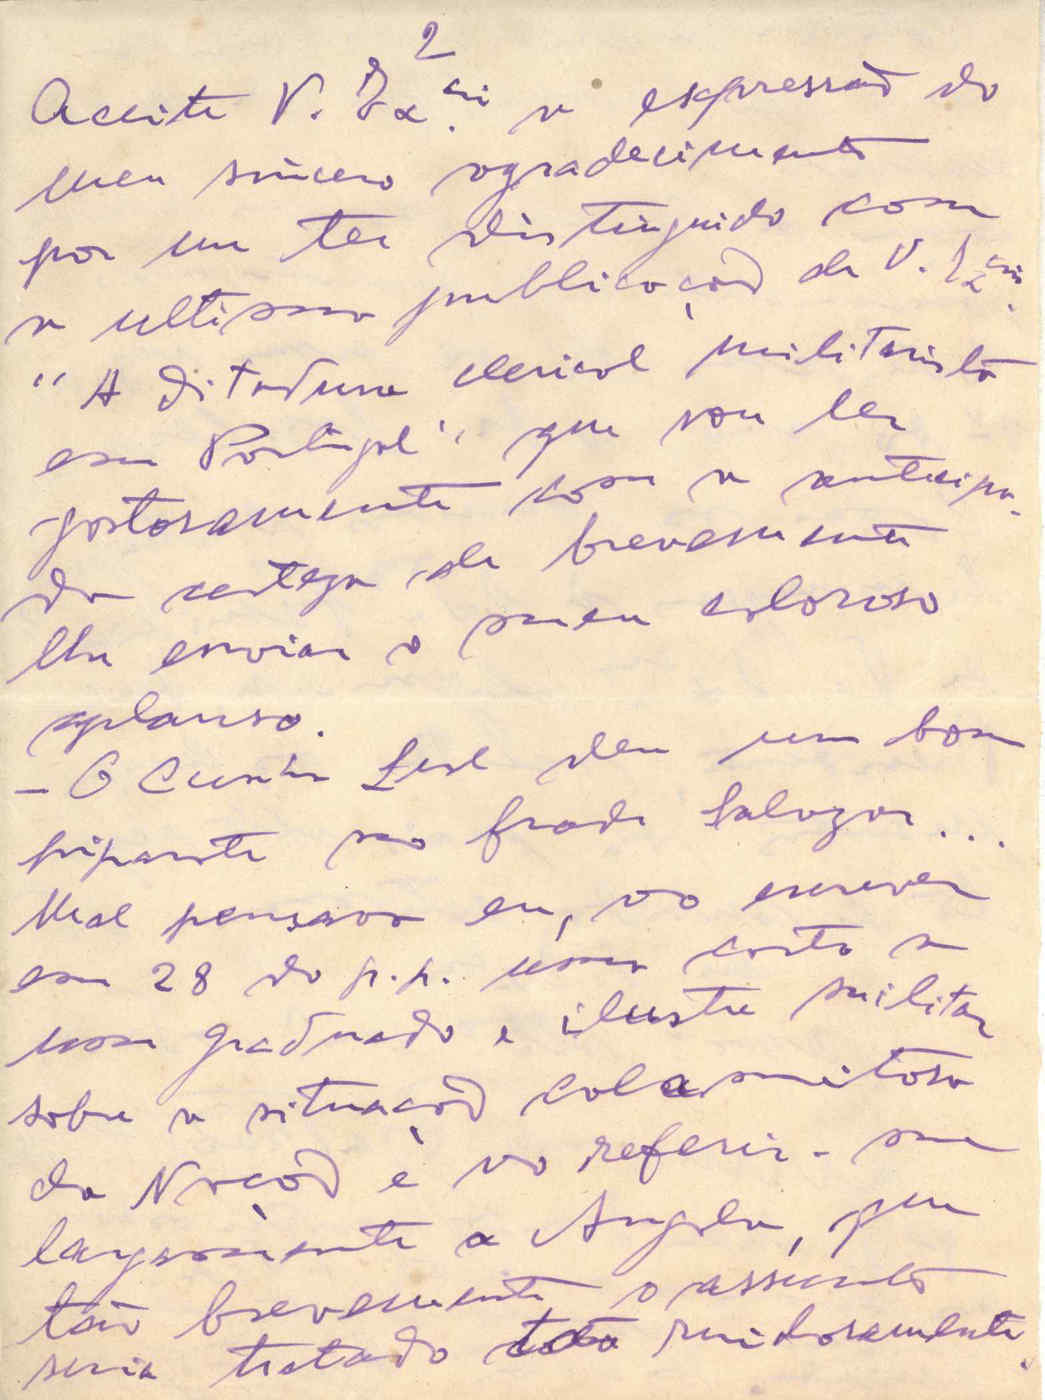 2
Acceite V. Ex.cia a expressão do
meu sincero agradecimento
por me ter distinguido com
a ultima publicação de V. Ex.cia
"A ditadura clerical militarista
em Portugal" que vou ler
gostosamente com a antecipa-
da certeza de brevemente
lhe enviar o meu caloroso
aplauso.
— O Cunha Leal deu um bom
piparote no frade Salazar...
Mal pensava eu, ao escrever
em 28 do p.p. uma carta a
um graduado e ilustre militar
sobre a situação calamitosa
da Nação e ao referir-me
largamente a Angola, que
tão brevemente o assunto
seria tratado tão ruidosamente.